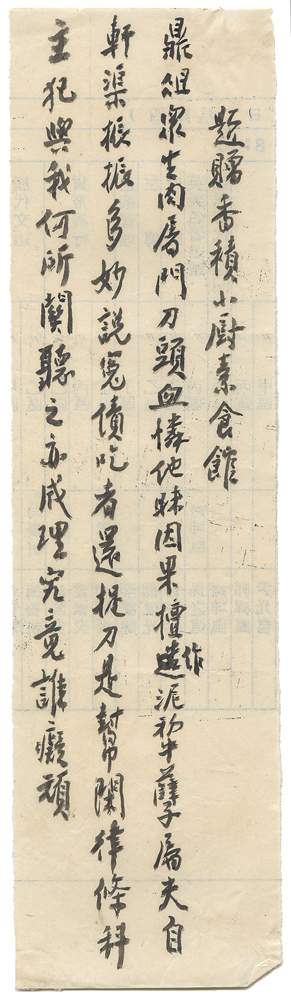 題贈香積小厨素食館
鼎俎衆生肉屠門刀頭血憐他昧因果擅造作泥犂孽屠夫自
軒渠振振多妙説冤債吃者還捉刀是幫閑律條科
主犯與我何所關聽之亦成理究竟誰癡頑